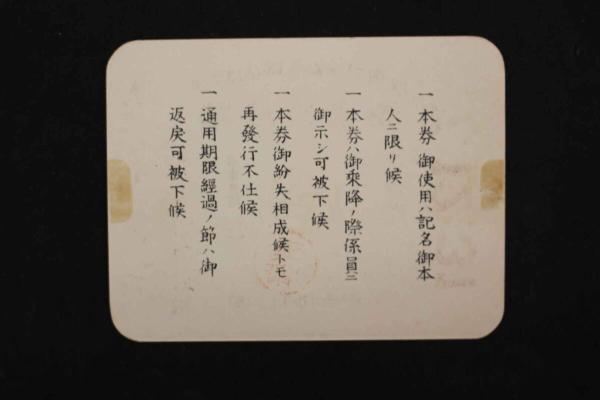 一本券御使用ハ記名御本
人ニ限リ候
一本券ハ御乘降ノ際係員ニ
御示シ可被下候
一本券御紛失相成候トモ
再發行不仕候
一通用期限經過ノ節ハ御
返戾可被下候